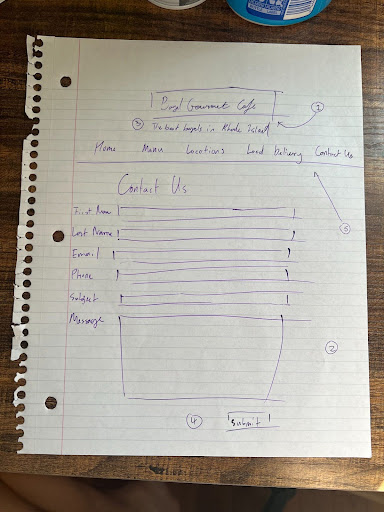 Bagel Gourmet Cafe
1
3 The best bagels in Rhode Island
Home Menu Locations Local Delivery Contact Us
Contact Us
5
First Name
Last Name
Email
Phone
Subject
Message
2
4 Submit